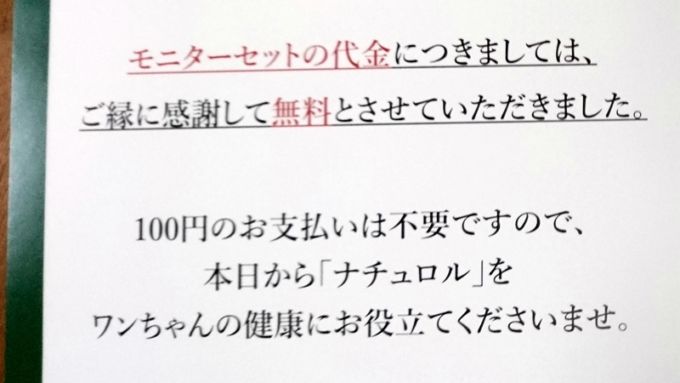 モニターセットの代金につきましては、
ご縁に感謝して無料とさせていただきました。
100円のお支払いは不要ですので、
本日から「ナチュロル」を
ワンちゃんの健康にお役立てくださいませ。